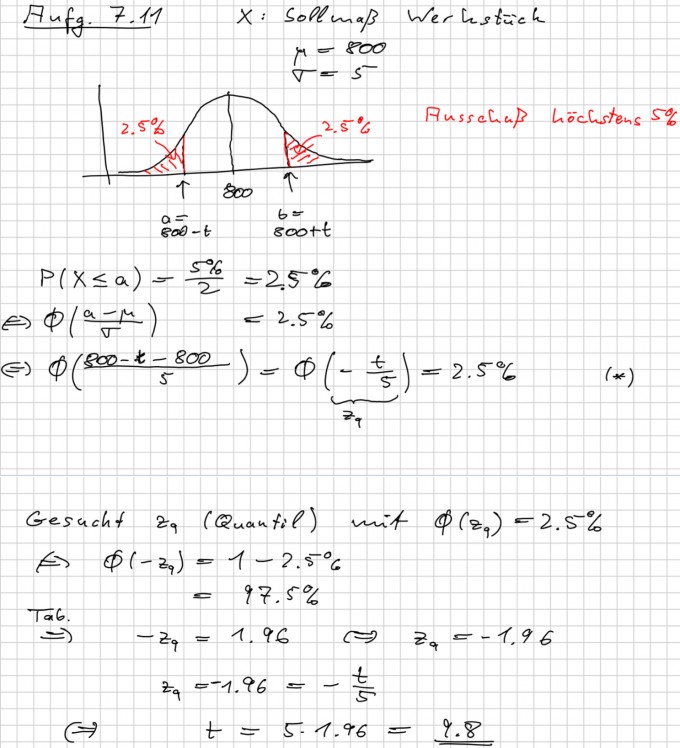 Aufg. 7.11 X: Sollmaß Werkstück
μ = 800
σ = 5
Ausschuß höchstens 5%
2.5% 2.5%
↑ 800 ↑
a = b =
800-t 800+t
P(X ≤ a) = 5%/2 = 2.5%
⇔ Φ((a-μ)/σ) = 2.5%
⇔ Φ((800-t-800)/5) = Φ(-t/5) = 2.5% (*)
z_q
Gesucht z_q (Quantil) mit Φ(z_q) = 2.5%
⇔ Φ(-z_q) = 1 - 2.5%
= 97.5%
Tab.
⇒ -z_q = 1.96 ⇔ z_q = -1.96
z_q = -1.96 = -t/5
⇔ t = 5·1.96 = 9.8